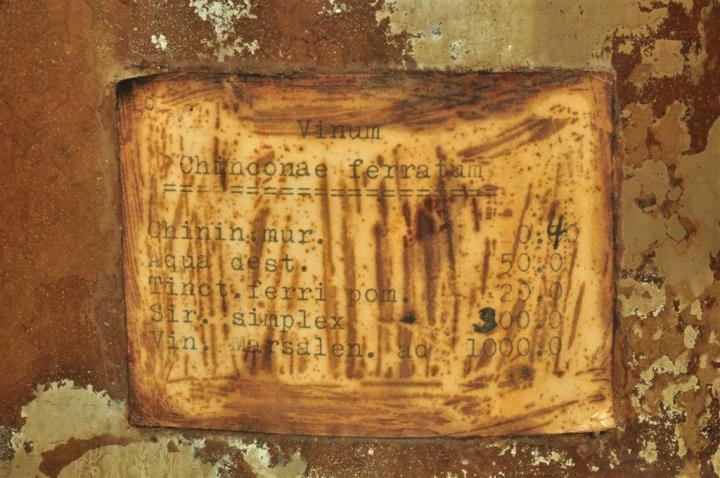 Vinum
Chinconae ferratum
====================
Chinin.mur. 0.40
Aqua dest. 50.0
Tinct.ferri pom. 20.0
Sir. simplex 300.0
Vin. Marsalen. ad 1000.0